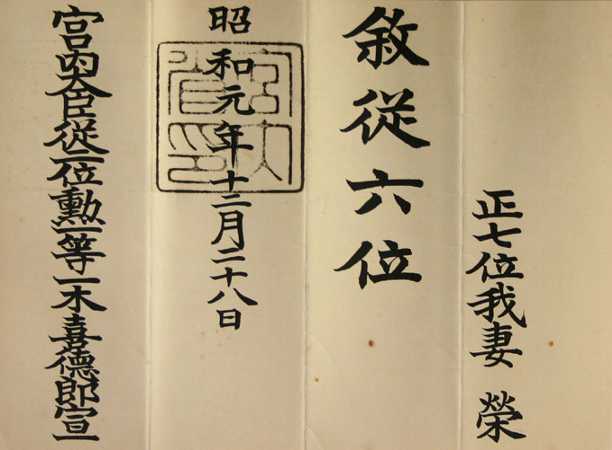 正七位我妻 榮
敘從六位
昭和元年十二月二十八日
宮内大臣從二位勲一等一木喜德郎宣
宮内省印